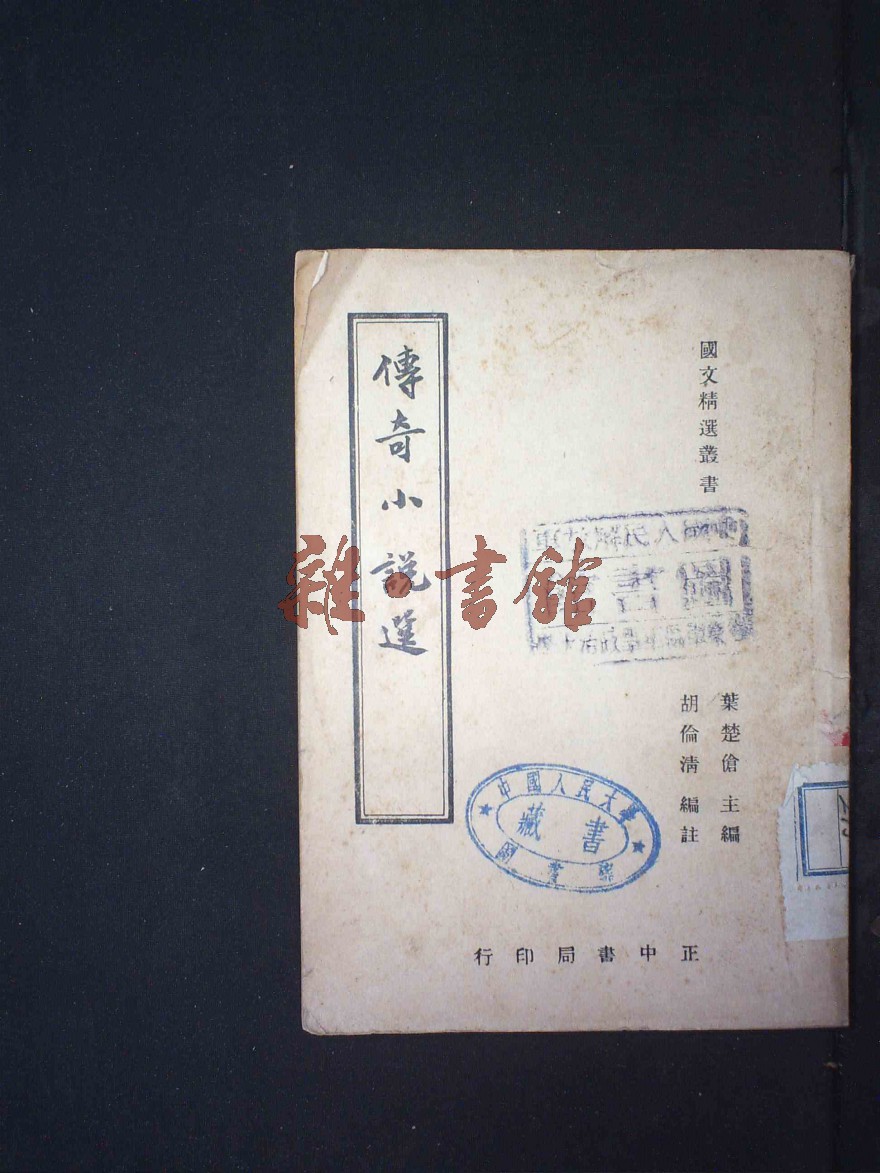 國文精選叢書
葉楚傖 主編
胡倫清 編註
傳奇小說選
雜·書館
中國人民大學
藏書
圖書館
正中書局印行